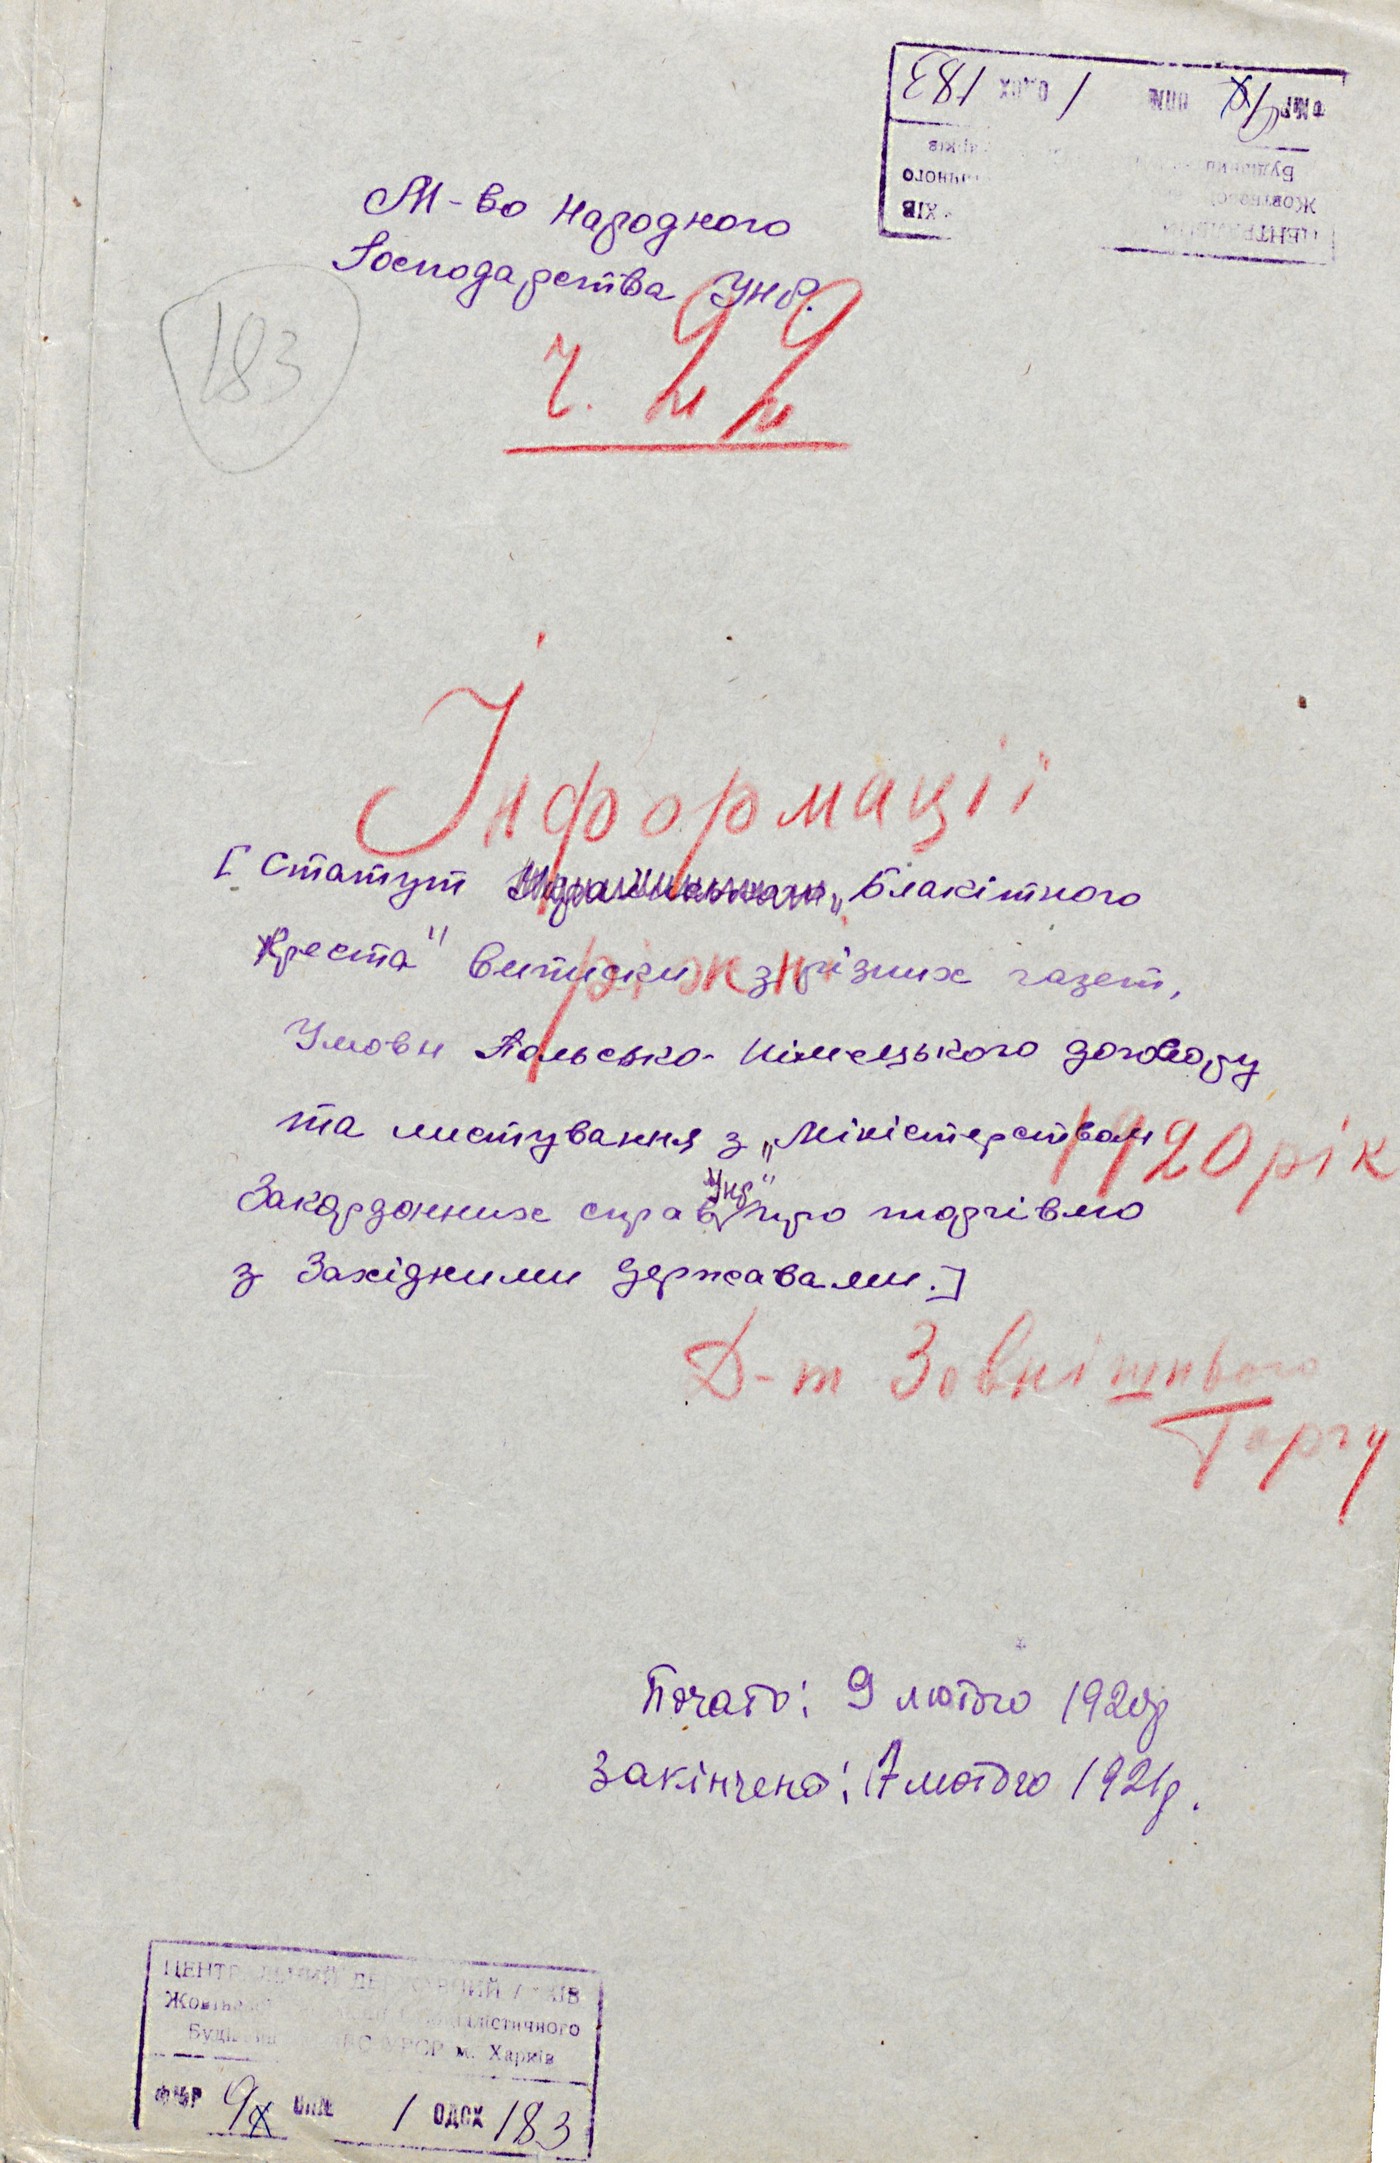 М-во Народного
Господарства УНР.
183
ч. 22
Інформації
[Статут „Блакітного
Креста" витиски з різних газет,
ріжні
Умови Польсько-Німецького договору
та листування з „Міністерством
1920 рік
Закордонних справ УНР" про торгівлю
з Західними державами.]
Д-т Зовнішнього
Торгу
Почато: 9 лютого 1920р
Закінчено: 17 лютого 1921р.
ЦЕНТРАЛЬНИЙ ДЕРЖАВНИЙ АРХІВ
Жовтневої соціалістичного
Будівництва УРСР м. Харків
ФМР ОПМ 1 ОДСХ 183